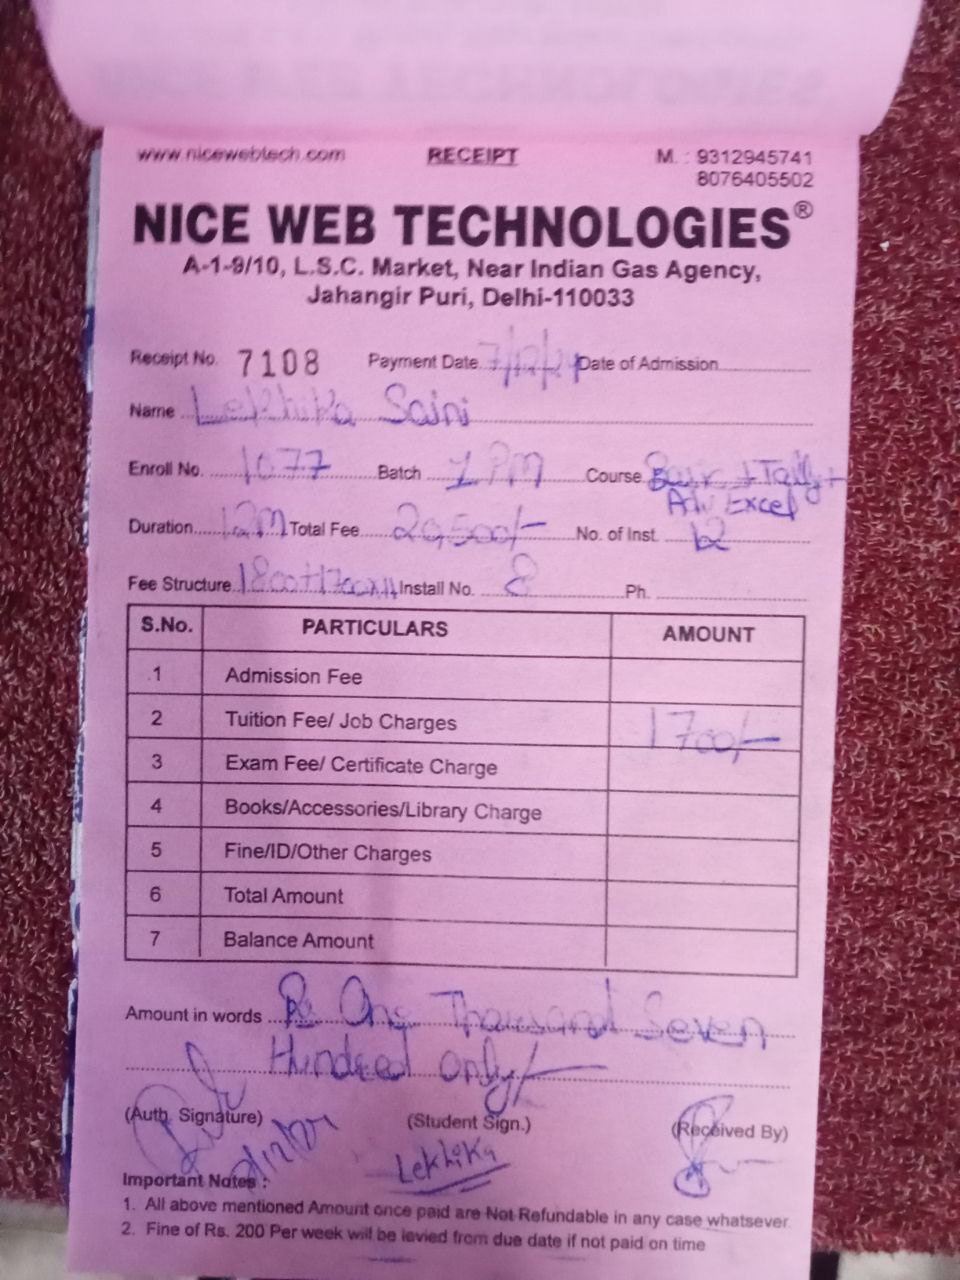 www.nicewebtech.com RECEIPT M. : 9312945741
8076405502
NICE WEB TECHNOLOGIES®
A-1-9/10, L.S.C. Market, Near Indian Gas Agency,
Jahangir Puri, Delhi-110033
Receipt No. 7108 Payment Date 7/12/24 Date of Admission
Name Lekhika Saini
Enroll No. 1077 Batch 1 PM Course Basic + Tally +
Adv Excel
Duration 12M Total Fee 20,500/- No. of Inst. 12
Fee Structure 1800+1700x11 Install No. 8 Ph.
S.No. PARTICULARS AMOUNT
1 Admission Fee
2 Tuition Fee/ Job Charges 1700/-
3 Exam Fee/ Certificate Charge
4 Books/Accessories/Library Charge
5 Fine/ID/Other Charges
6 Total Amount
7 Balance Amount
Amount in words Rs One Thousand Seven
Hundred only/-
(Auth. Signature) (Student Sign.) (Received By)
Lekhika
Important Notes :
1. All above mentioned Amount once paid are Not Refundable in any case whatsever.
2. Fine of Rs. 200 Per week will be levied from due date if not paid on time